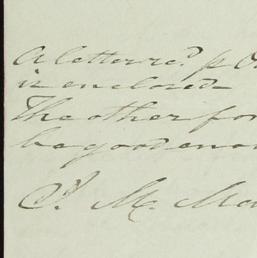 A letter rec.d p
is enclosed
The other for
be good
J. M.